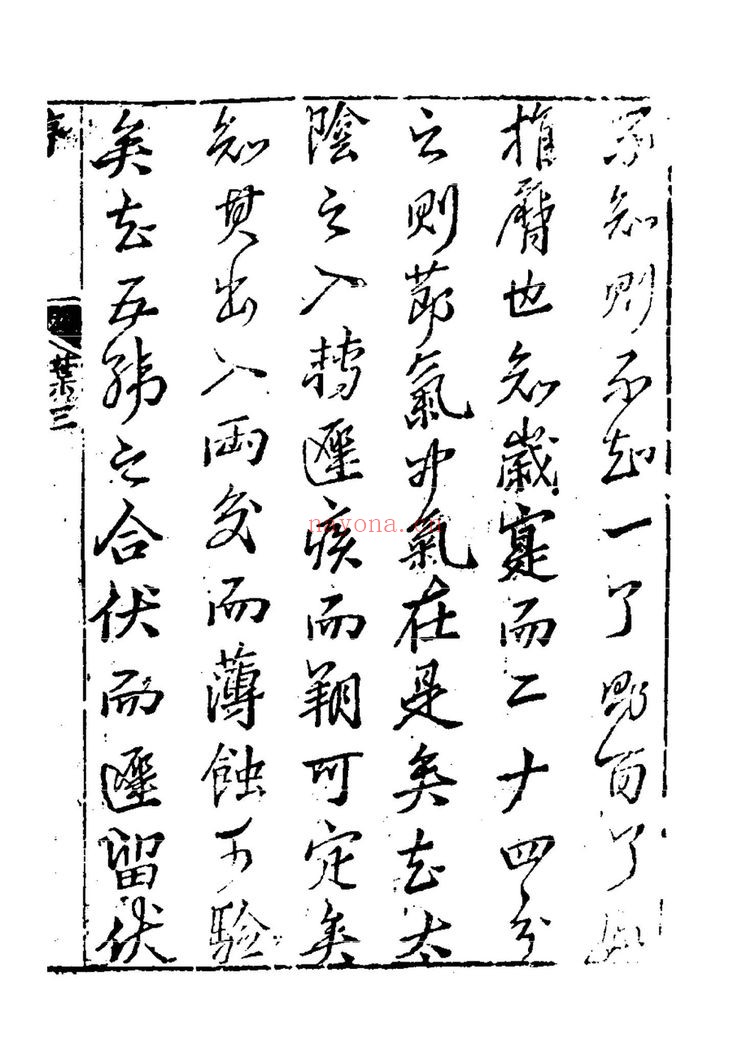 知則不知一了百了
推曆也知歲實而二十四分
之則節氣中氣在是矣知太
陰之入轉遲疾而朔可定矣
知其出入兩交而薄蝕可驗
矣知五緯之合伏而遲留伏
葉三
nayona.cn